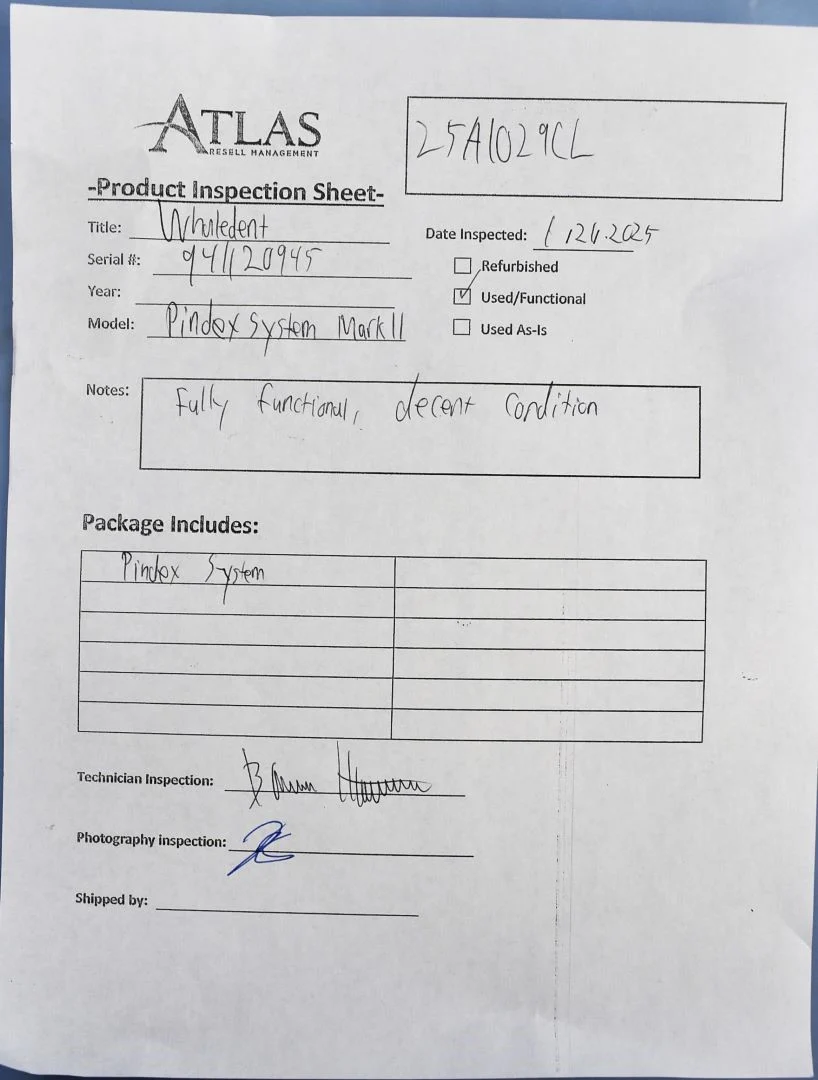 ATLAS
RESELL MANAGEMENT
25A1029CL
-Product Inspection Sheet-
Title: Whaledent
Date Inspected:
Serial #: 941120945
Refurbished
Year:
Used/Functional
Model: Pindex System Mark II
Used As-Is
Notes: Fully functional, decent condition
Package Includes:
Pindex System
Technician Inspection:
Photography inspection:
Shipped by: